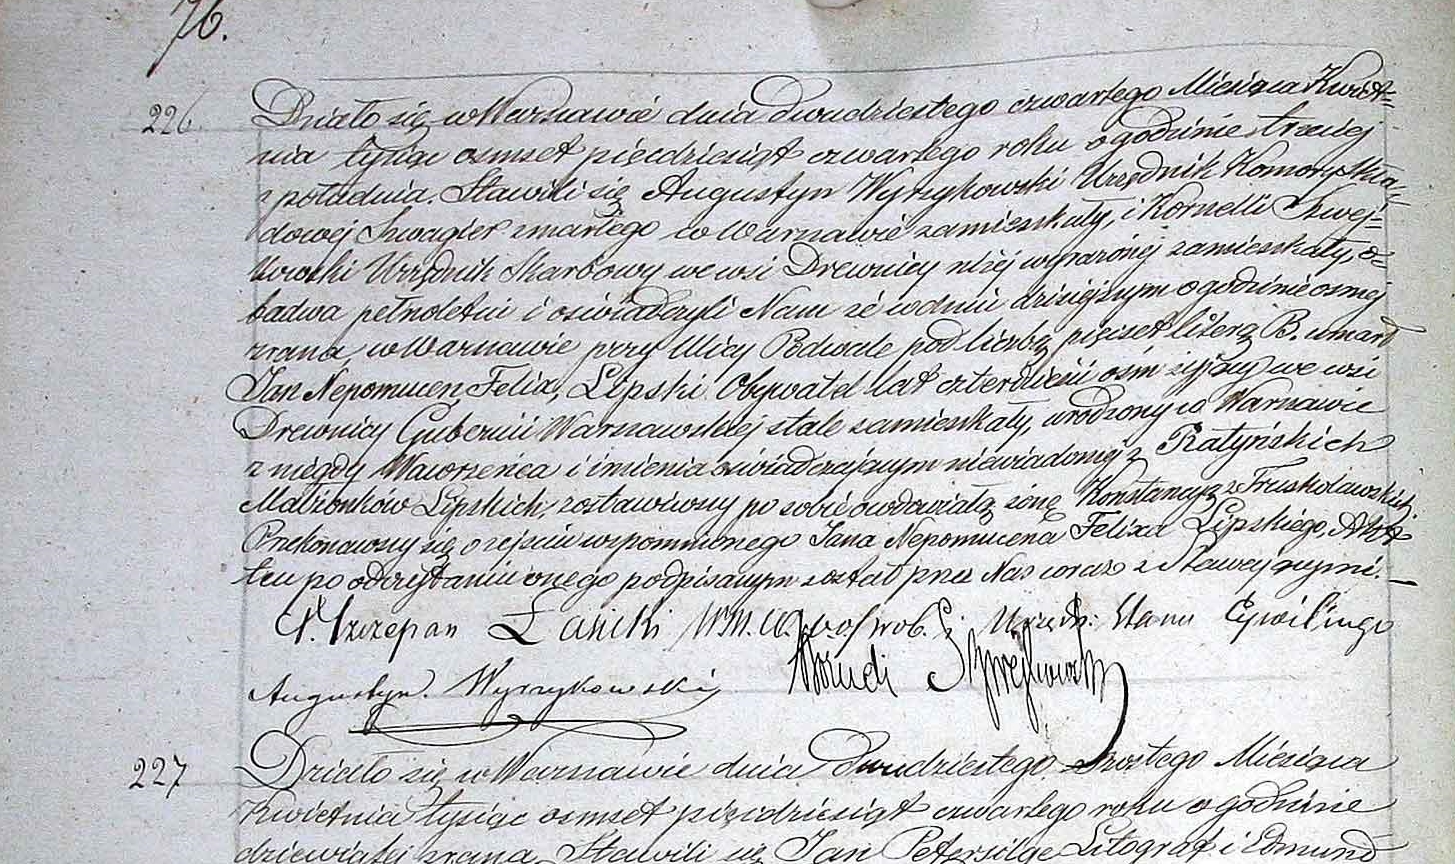 76.
226. Działo się w Warszawie dnia dwudziestego czwartego Miesiąca Kwiet=
nia tysiąc osmset pięćdziesiąt czwartego roku o godzinie trzeciej
z południa. Stawili się Augustyn Wyrzykowski Urzędnik Komory Skła=
dowej Szwagier zmarłego w Warszawie zamieszkały, i Kornelli Szwej=
kowski Urzędnik Skarbowy we wsi Drewnicy niżej wyrażonej zamieszkały, o=
badwa pełnoletni i oświadczyli Nam że w dniu dzisiejszym o godzinie osmej
zrana, w Warszawie przy Ulicy Podwale pod liczbą pięćset literą B. umarł
Jan Nepomucen Felix, Lipski Obywatel lat czterdzieści ośm żyjący we wsi
Drewnicy Gubernii Warszawskiej stale zamieszkały, urodzony w Warszawie
z niegdy Wawrzeńca i imienia oświadczającym niewiadomej z Ratyńskich
Małżonków Lipskich, zostawiwszy po sobie owdowiałą żonę Konstancyą z Truskolawskich.
Przekonawszy się o zejściu wspomnionego Jana Nepomucena Felixa Lipskiego, Akt
ten po odczytaniu onego podpisanym został przez Nas wraz z Stawającymi.
X. Szczepan Łasicki Urzęd: Stanu Cywilnego
Augustyn Wyrzykowski Szwejkowski
227 Działo się w Warszawie dnia Dwudziestego szóstego Miesiąca
Kwietnia tysiąc osmset pięćdziesiąt czwartego roku o godzinie
dziewiątej zrana, Stawili się Jan Petersilge Litograf i Edmund